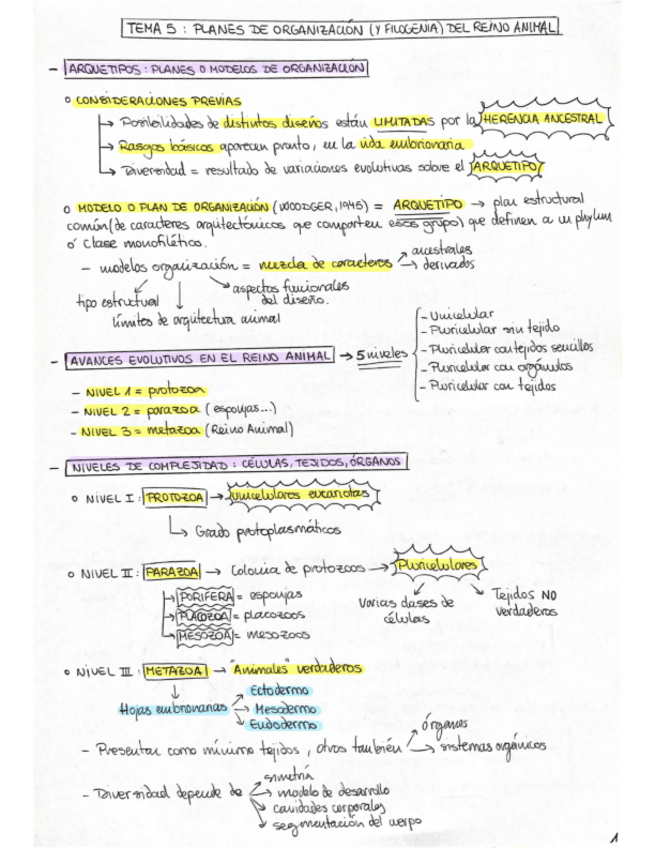 TEMA 5 : PLANES DE ORGANIZACIÓN (Y FILOGENIA) DEL REINO ANIMAL
- ARQUETIPOS : PLANES O MODELOS DE ORGANIZACIÓN
o CONSIDERACIONES PREVIAS
↳ Posibilidades de distintos diseños están LIMITADAS por la HERENCIA ANCESTRAL
↳ Rasgos básicos aparecen pronto, en la vida embrionaria
↳ Diversidad = resultado de variaciones evolutivas sobre el ARQUETIPO
o MODELO O PLAN DE ORGANIZACIÓN (WOODGER, 1945) = ARQUETIPO → plan estructural
común (de caracteres arquitectónicos que comparten esos grupo) que definen a un phylum
ó clase monofilético.
- modelos organización = mezcla de caracteres
ancestrales
derivados
tipo estructural
límites de arquitectura animal
aspectos funcionales
del diseño.
- AVANCES EVOLUTIVOS EN EL REINO ANIMAL → 5 niveles
- Unicelular
- Pluricelular sin tejido
- Pluricelular con tejidos sencillos
- Pluricelular con orgánulos
- Pluricelular con tejidos
- NIVEL 1 = protozoa
- NIVEL 2 = parazoa (esponjas...)
- NIVEL 3 = metazoa (Reino Animal)
- NIVELES DE COMPLEJIDAD : CÉLULAS, TEJIDOS, ÓRGANOS
o NIVEL I : PROTOZOA → Unicelulares eucariotas
↳ Grado protoplasmáticos
o NIVEL II : PARAZOA → Colonia de protozoos → Pluricelulares
PORIFERA = esponjas
PLACOZOA = placozoos
MESOZOA = mesozoos
Varias clases de
células
Tejidos NO
verdaderos
o NIVEL III : METAZOA → "Animales" verdaderos
Hojas embrionarias
Ectodermo
Mesodermo
Endodermo
- Presentan como mínimo tejidos, otros también
órganos
sistemas orgánicos
- Diversidad depende de
simetría
modelo de desarrollo
cavidades corporales
segmentación del cuerpo
1